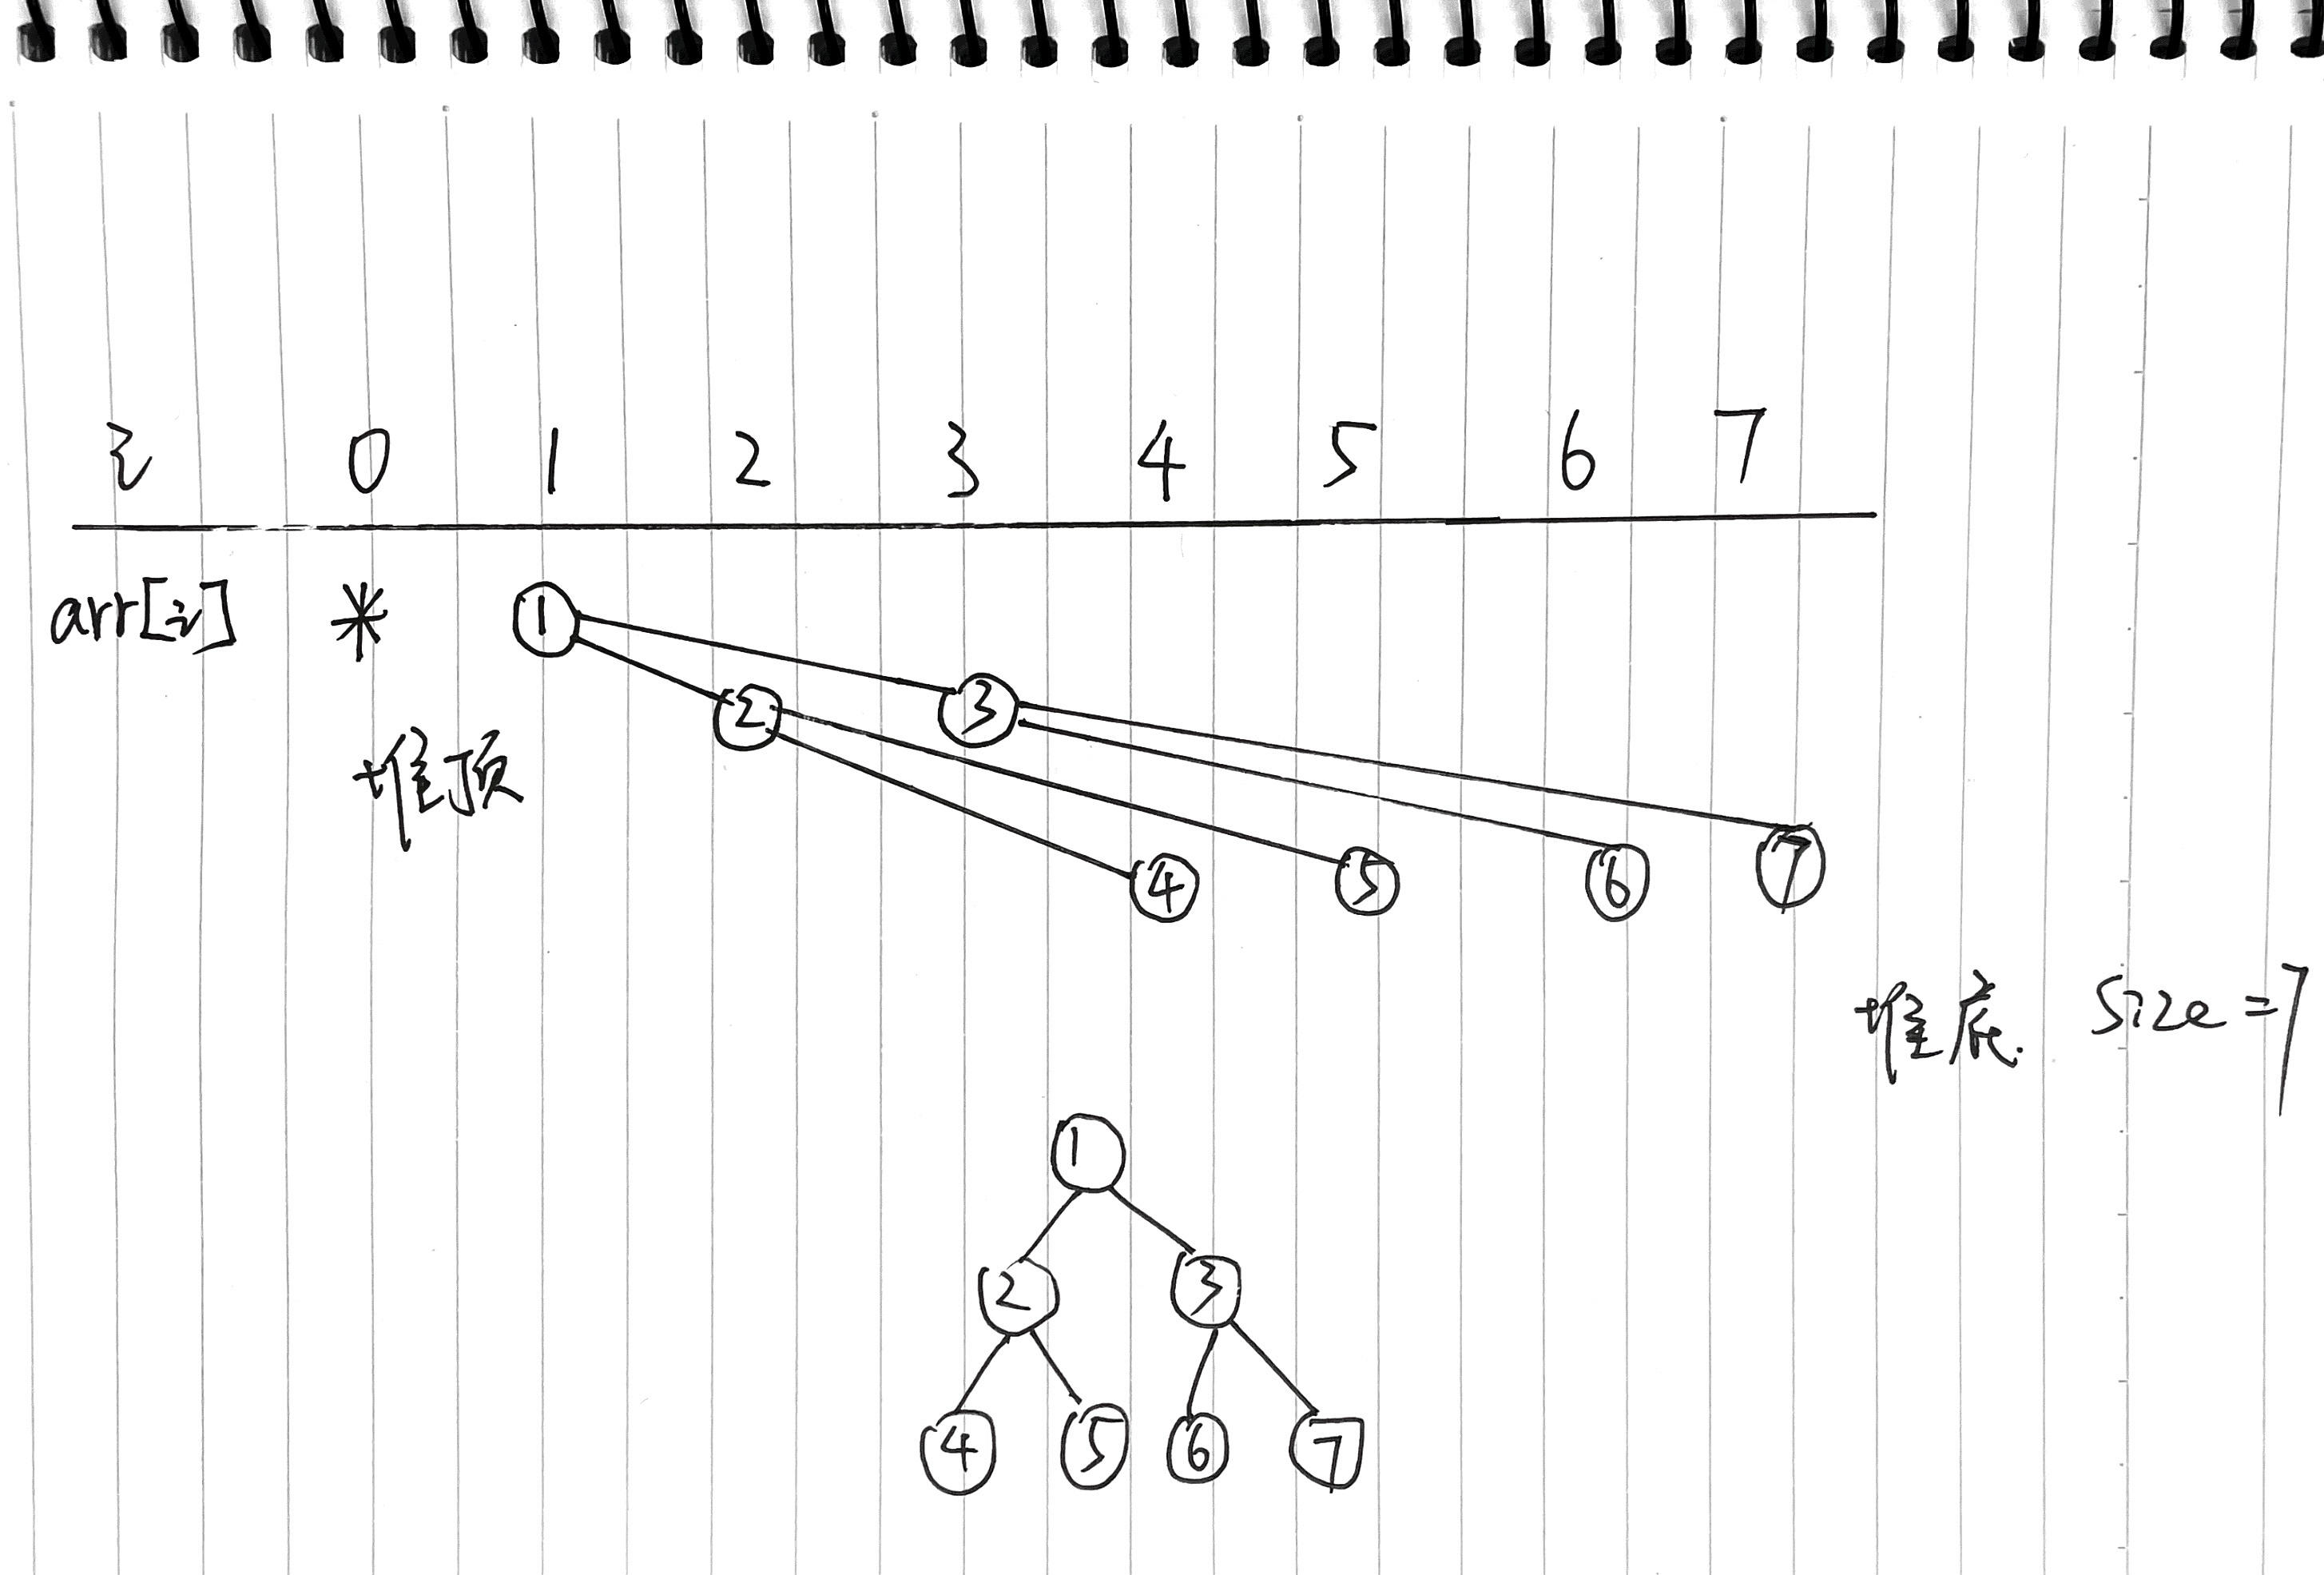 i 0 1 2 3 4 5 6 7
arr[i] * 1
2 3
堆顶
4 5 6 7
堆底. size=7
1
2 3
4 5 6 7